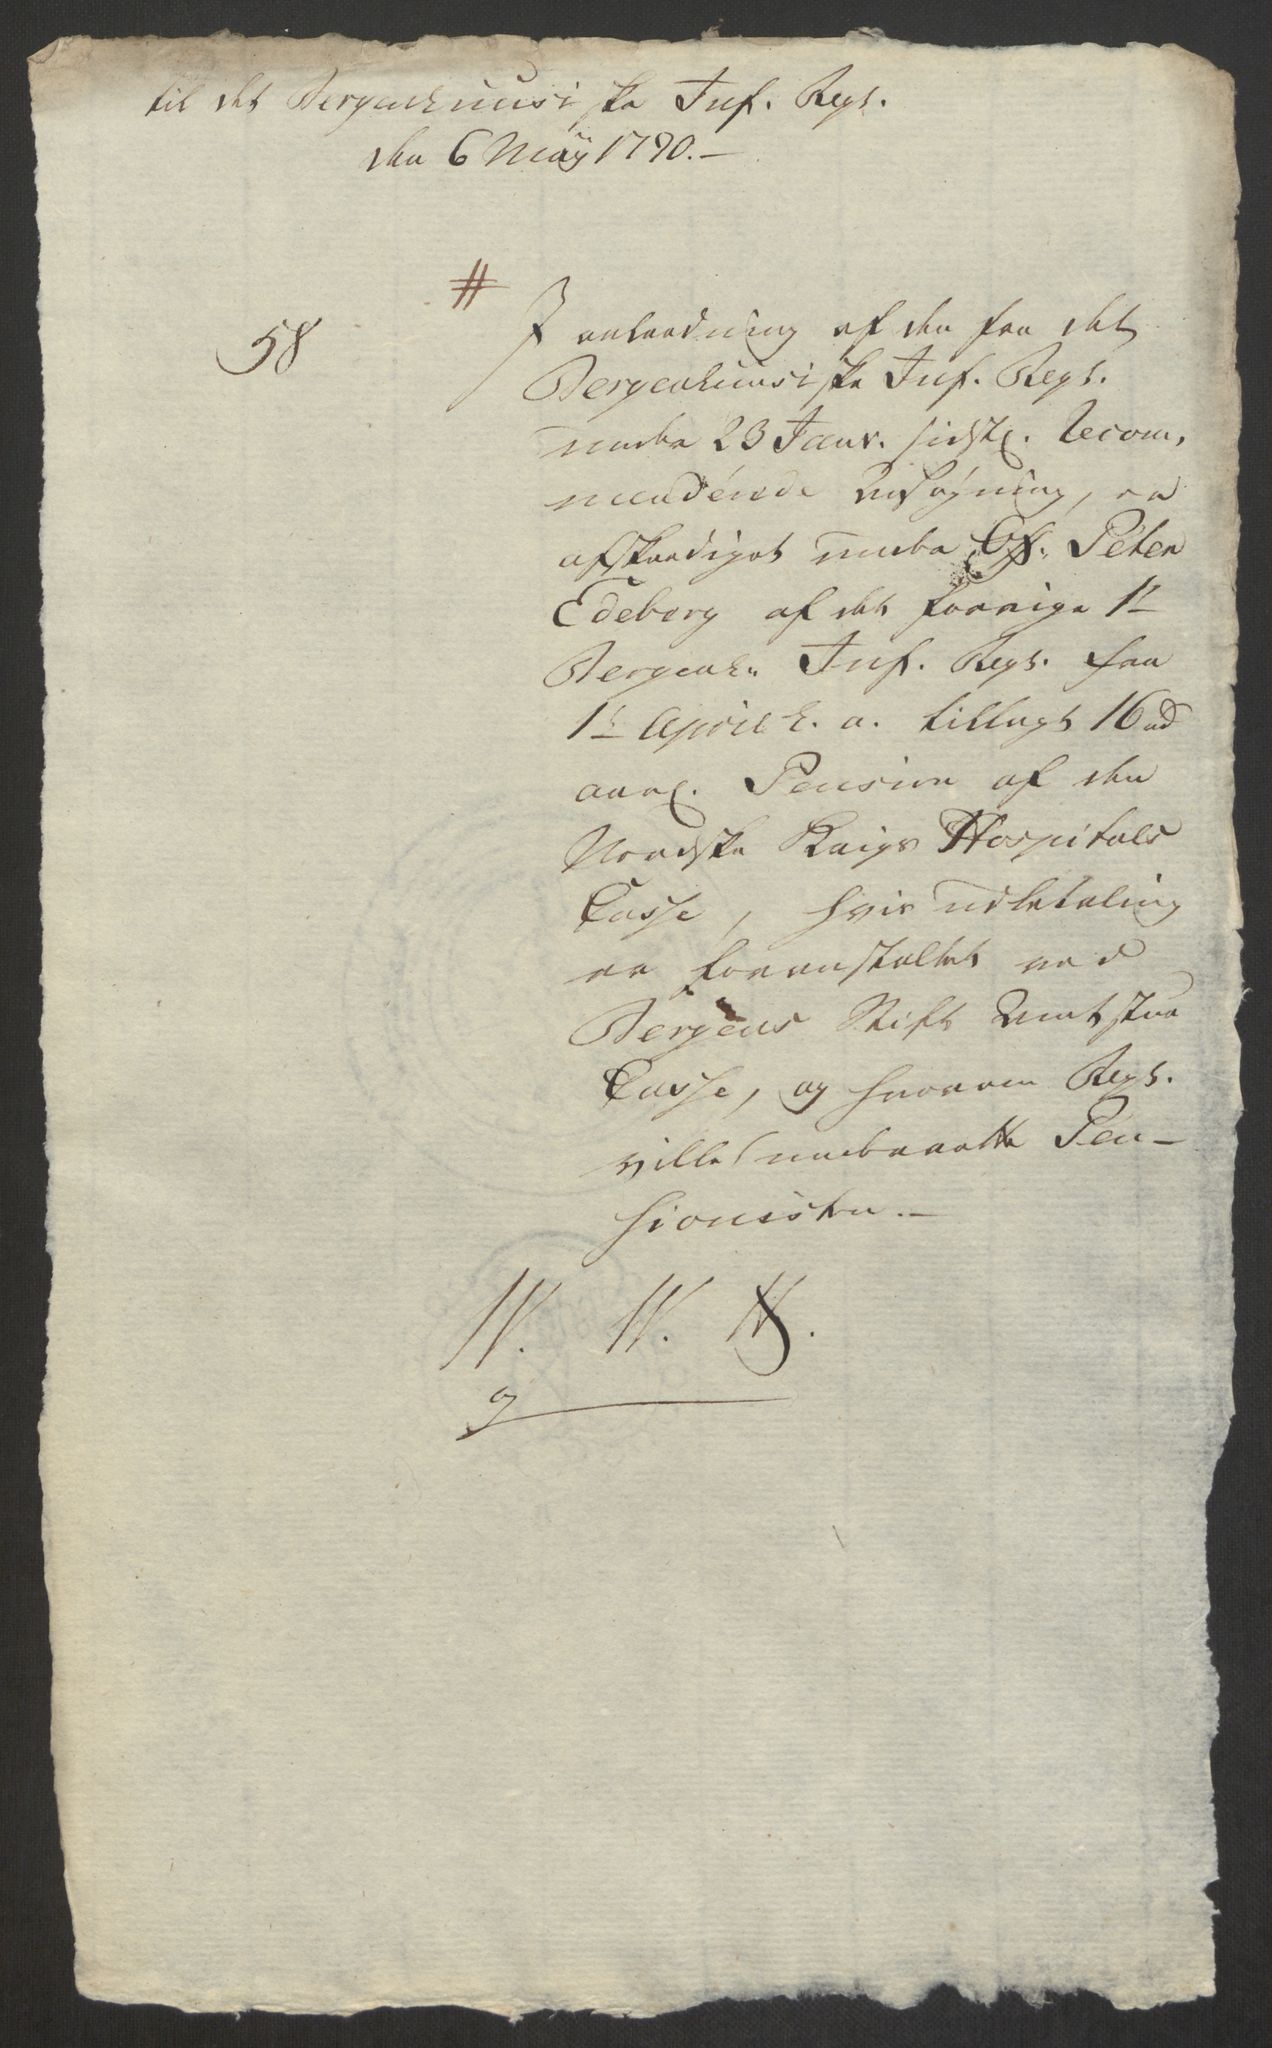 til det Bergenhuusiske Inf. Regt.
den 6 Maÿ 1790.—
#
58
I anledning af den fra det
Bergenhuusiske Inf. Regt.
under 23 Janv. sidstl. recom,
menderede Ansøgning, er
afskeediget under Off. Peter
Edeberg af det forrige 1te
Bergenh. Inf. Regt. fra
1te April h. a. tillagt 16 rd
aarl. Pension af den
Norske Krigs Hospitals
Casse, hvis udbetaling
er foranstaltet ved
Bergens Stift Amtstue
Casse, og hvorom Regt.
ville underrette Pen-
sionisten.—